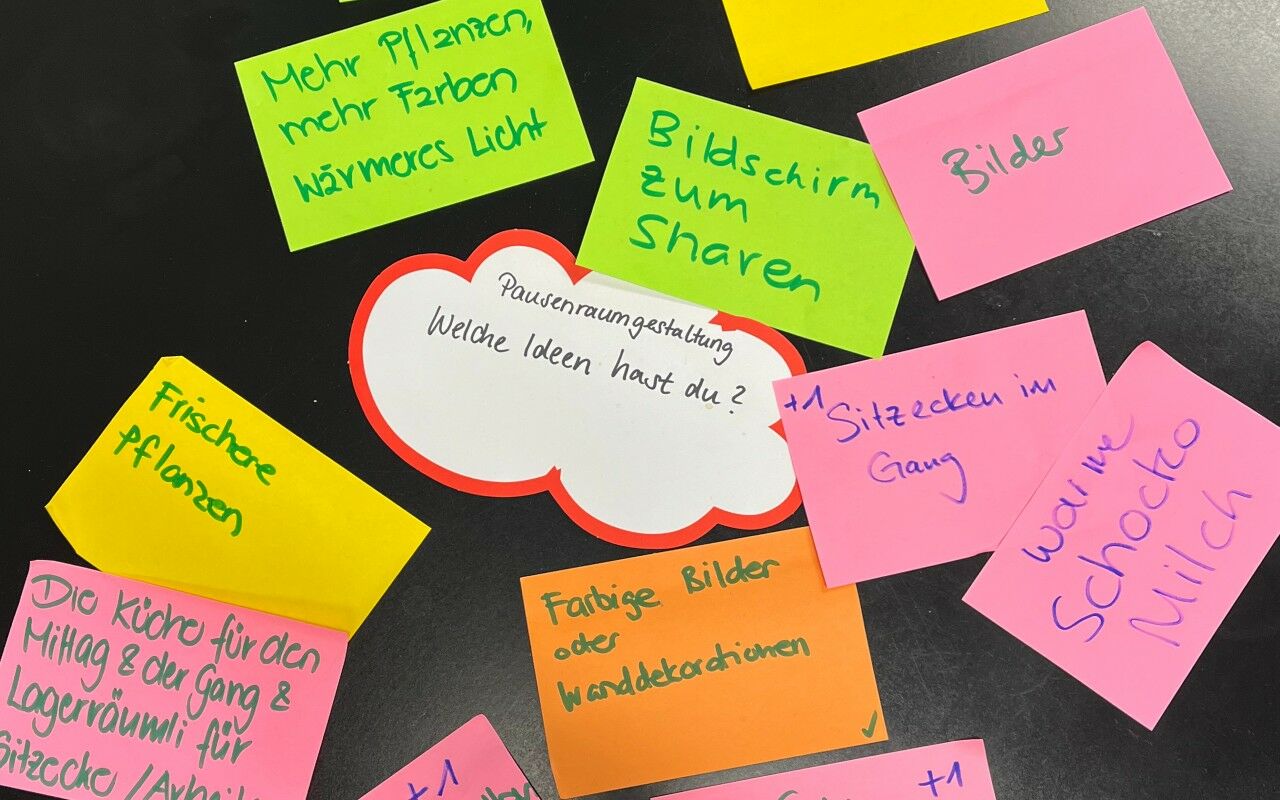 Mehr Pflanzen,
mehr Farben
wärmeres Licht
Bildschirm
zum
Sharen
Bilder
Pausenraumgestaltung
Welche Ideen hast du?
+1 Sitzecken im
Gang
warme
Schocko
Milch
Frischere
Pflanzen
Die Küche für den
Mittag & der Gang &
Lagerräumli für
Sitzecke /
Farbige Bilder
oder
Wanddekorationen
✓
+1
+1